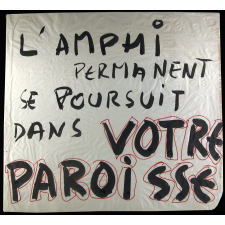 L'AMPHI
PERMANENT
SE POURSUIT
DANS VOTRE
PAROISSE